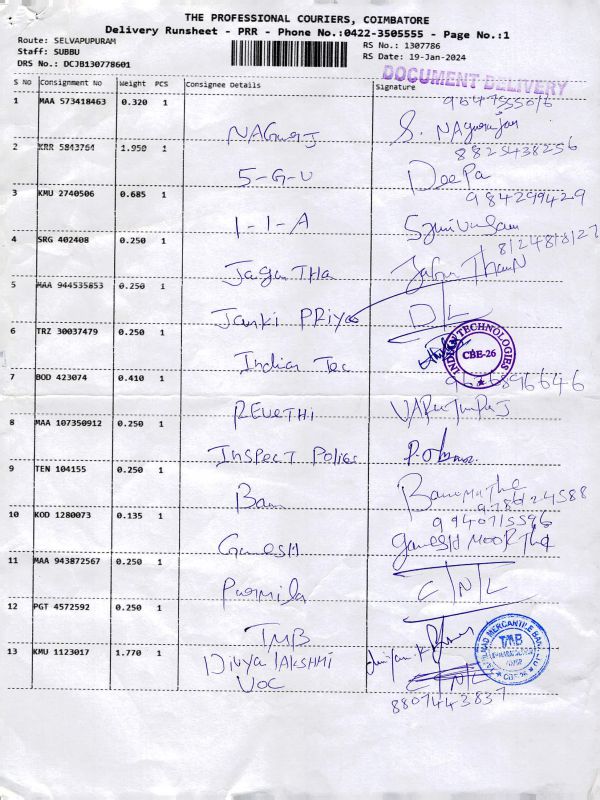 THE PROFESSIONAL COURIERS, COIMBATORE
Delivery Runsheet - PRR - Phone No.:0422-3505555 - Page No.:1
Route: SELVAPUPURAM
Staff: SUBBU
DRS No.: DCJB130778601
RS No.: 1307786
RS Date: 19-Jan-2024
DOCUMENT DELIVERY
S No Consignment No Weight PCS Consignee Details Signature
1 MAA 573418463 0.320 1
NAGURAJ
2 KRR 5843764 1.950 1 8825438256
5-G-U DeePa
3 KMU 2740506 0.685 1 984299429
1-1-A
4 SRG 402408 0.250 1 8124818127
JaganTha
5 MAA 944535853 0.250 1
Janki PRiya D/L
6 TRZ 30037479 0.250 1
Indian Tec
INDIAN TECHNOLOGIES
CBE-26
7 BOD 423074 0.410 1
REVETHI
8 MAA 107350912 0.250 1
InsPecT Police
9 TEN 104155 0.250 1
Banu
10 KOD 1280073 0.135 1 9940715596
GanesH GanesH MOORTHe
11 MAA 943872567 0.250 1
Purmila C/N/L
12 PGT 4572592 0.250 1
TMB
TAMILNAD MERCANTILE BANK LTD
TMB
CBE-26
13 KMU 1123017 1.770 1
DIVYA LAKSHMI
VOC
8807443837